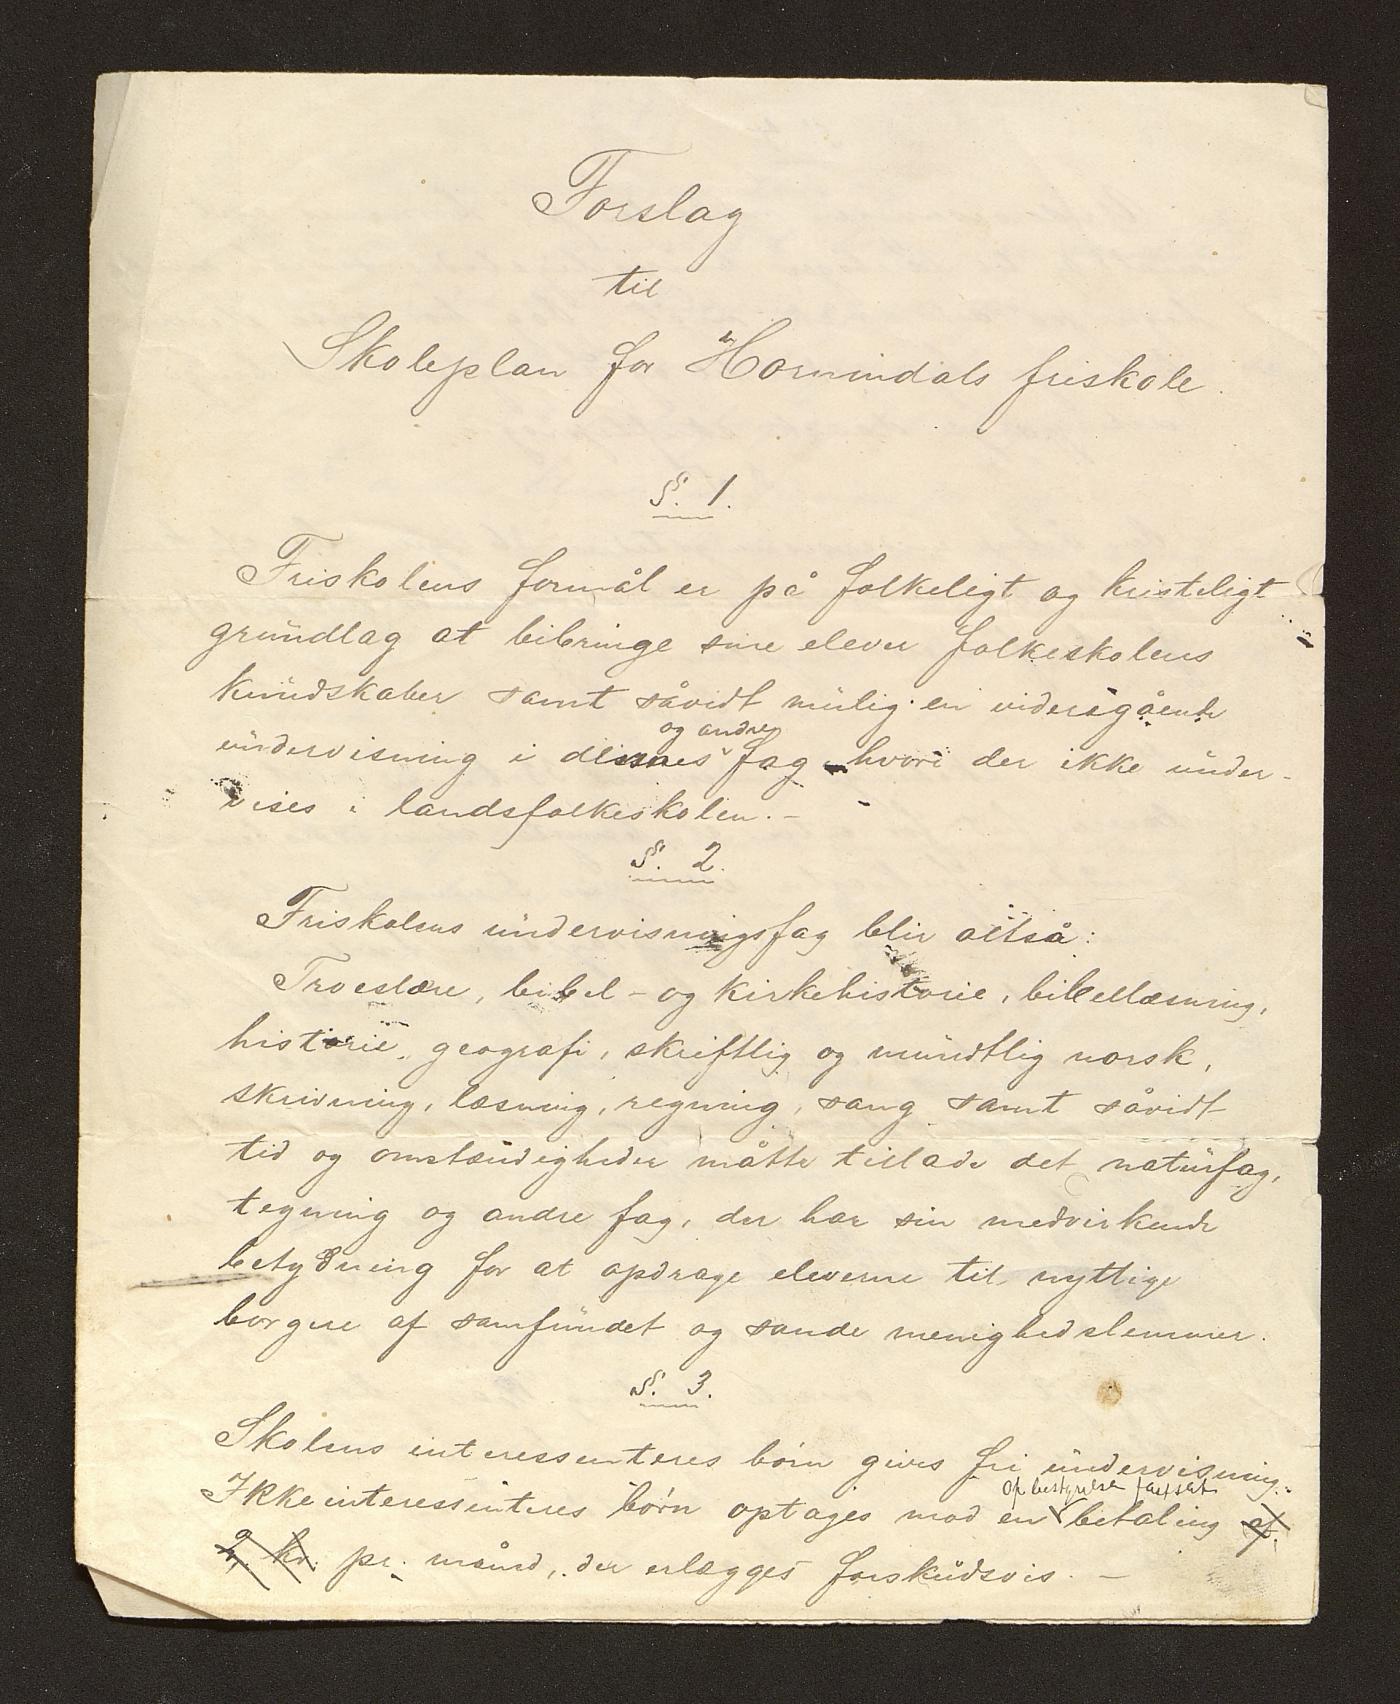 Forslag
til
Skoleplan for Hornindals friskole.
§. 1.
Friskolens formål er på folkeligt og kristeligt
grundlag at bibringe sine elever folkeskolens
kundskaber samt såvidt mulig en videregående
og andre
undervisning i dennes fag hvori der ikke under-
vises i landsfolkeskolen. -
§. 2.
Friskolens undervisningsfag blir altså:
Troeslære, bibel- og kirkehistorie, bibellæsning,
historie, geografi, skriftlig og mundtlig norsk,
skrivning, læsning, regning, sang samt såvidt
tid og omstændigheder måtte tillade det naturfag,
tegning og andre fag, der har sin medvirkende
betydning for at opdrage eleverne til nyttige
borgere af samfundet og sande menighedslemmer.
§. 3.
Skolens interessenteres børn gives fri undervisning.
af bestyrelse fastsat
Ikkeinteressenteres børn optages mod en betaling af
2. kr. pr. måned, der erlægges forskudsvis. -